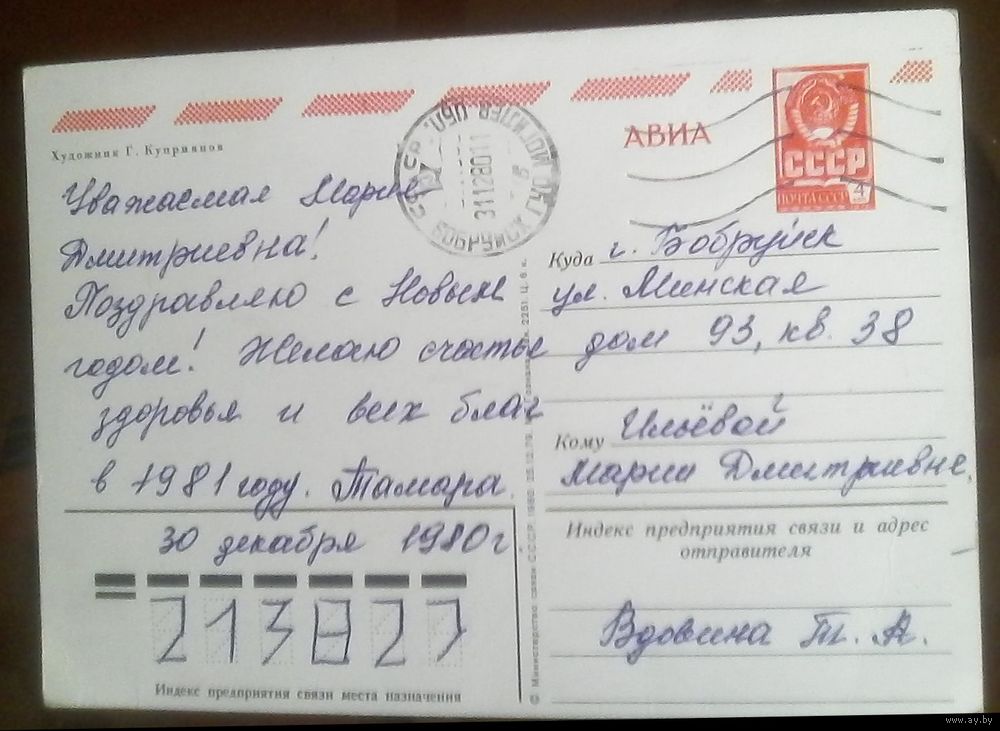 АВИА
СССР
ПОЧТА СССР
4
Художник Г. Куприянов
Уважаемая Мария
Дмитриевна!
Поздравляю с Новым
годом! Желаю счастье
здоровья и всех благ
в 1981 году. Тамара.
30 декабря 1980 г
213827
Индекс предприятия связи места назначения
БОБРУЙСК
31128011
Куда г. Бобруйск
ул. Минская
дом 93, кв. 38
Кому Ильёвой
Марии Дмитриевне,
Индекс предприятия связи и адрес
отправителя
Вдовина Т. А.
© Министерство связи СССР. 1980. 25.12.79.
www.ay.by